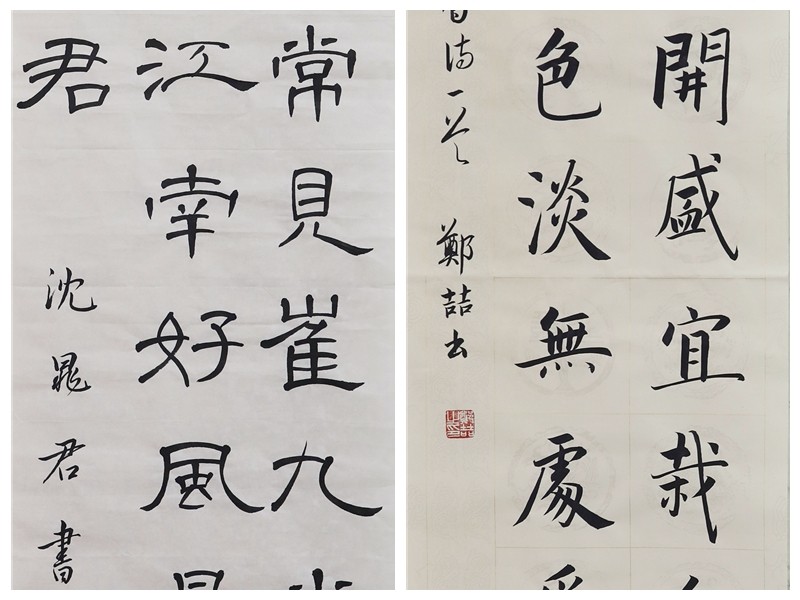 常見崔九
江南好風
君
沈晁君書
開盛宜栽
色淡無處
詩一首 鄭喆书